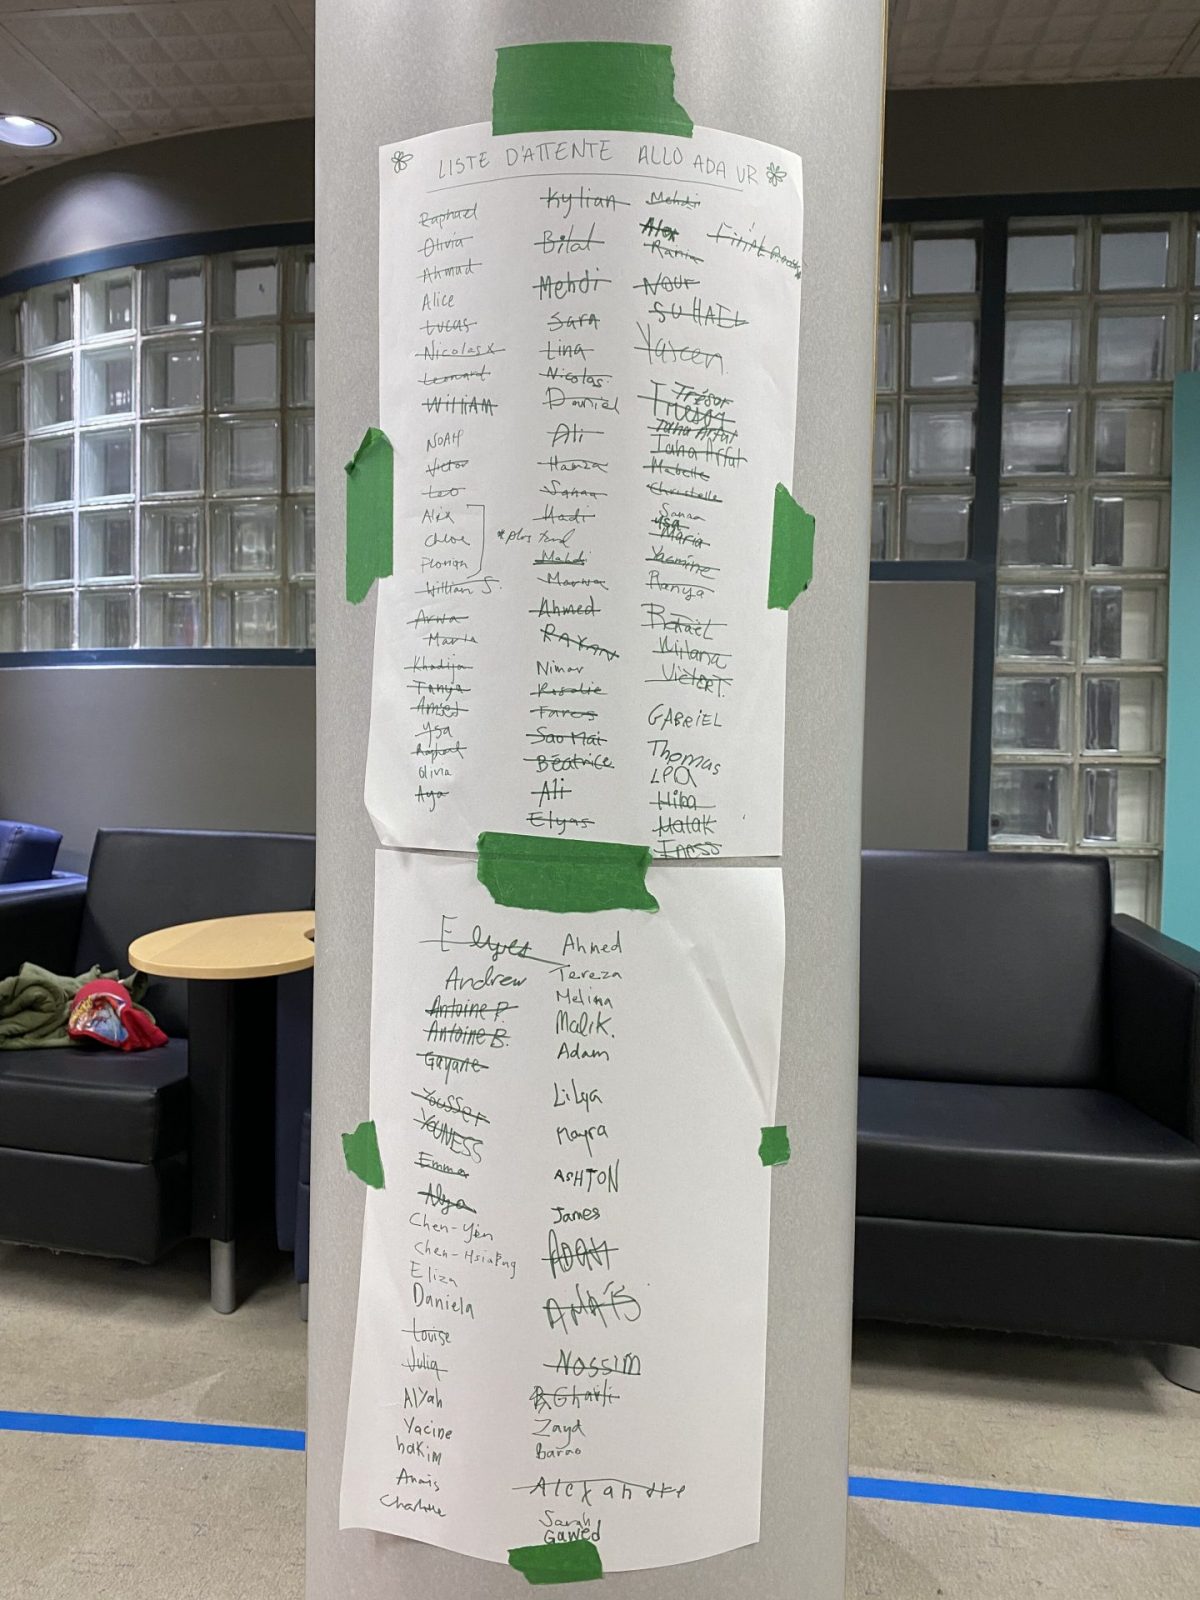 LISTE D'ATTENTE ALLO ADA VR
Raphael
Olivia
Ahmad
Alice
Lucas
Nicolas x
Leonard
WilliAM
NOAH
Victor
Leo
Alix
Chloe
Florian
*plus tard
William S.
Arwa
Maria
Khadija
Tanya
Ysa
Raphael
Olivia
Aya
Kylian
Bilal
Mehdi
Sara
Lina
Nicolas
Daniel
Ali
Hamza
Sanaa
Hadi
Mehdi
Marwa
Ahmed
RAYAN
Nimar
Rosalie
Fares
Sao Mai
Béatrice
Ali
Elyas
Mehdi
Alex
Rania
NOUR
SUHAEL
Yascen
Trésor
Taha Affal
Taha Affal
Mabelle
Christelle
Sanaa
Ysa
Maria
Yasmine
Ranya
Rafaël
Milana
VictorT.
GABRIEL
Thomas
Hiba
Malak
Iness
Elyes
Andrew
Antoine P.
Antoine B.
Gayane
Youssef
YOUNESS
Emma
Alya
Chen-Yen
Eliza
Daniela
Louise
Julia
Alyah
Yacine
hakim
Anais
Charlotte
Ahmed
Tereza
Melina
Malik.
Adam
Lilya
Mayra
ASHTON
James
ADAM
ANAÏS
NOSSIM
Gharli
Zayd
Alexandre
Sarah
Gawed